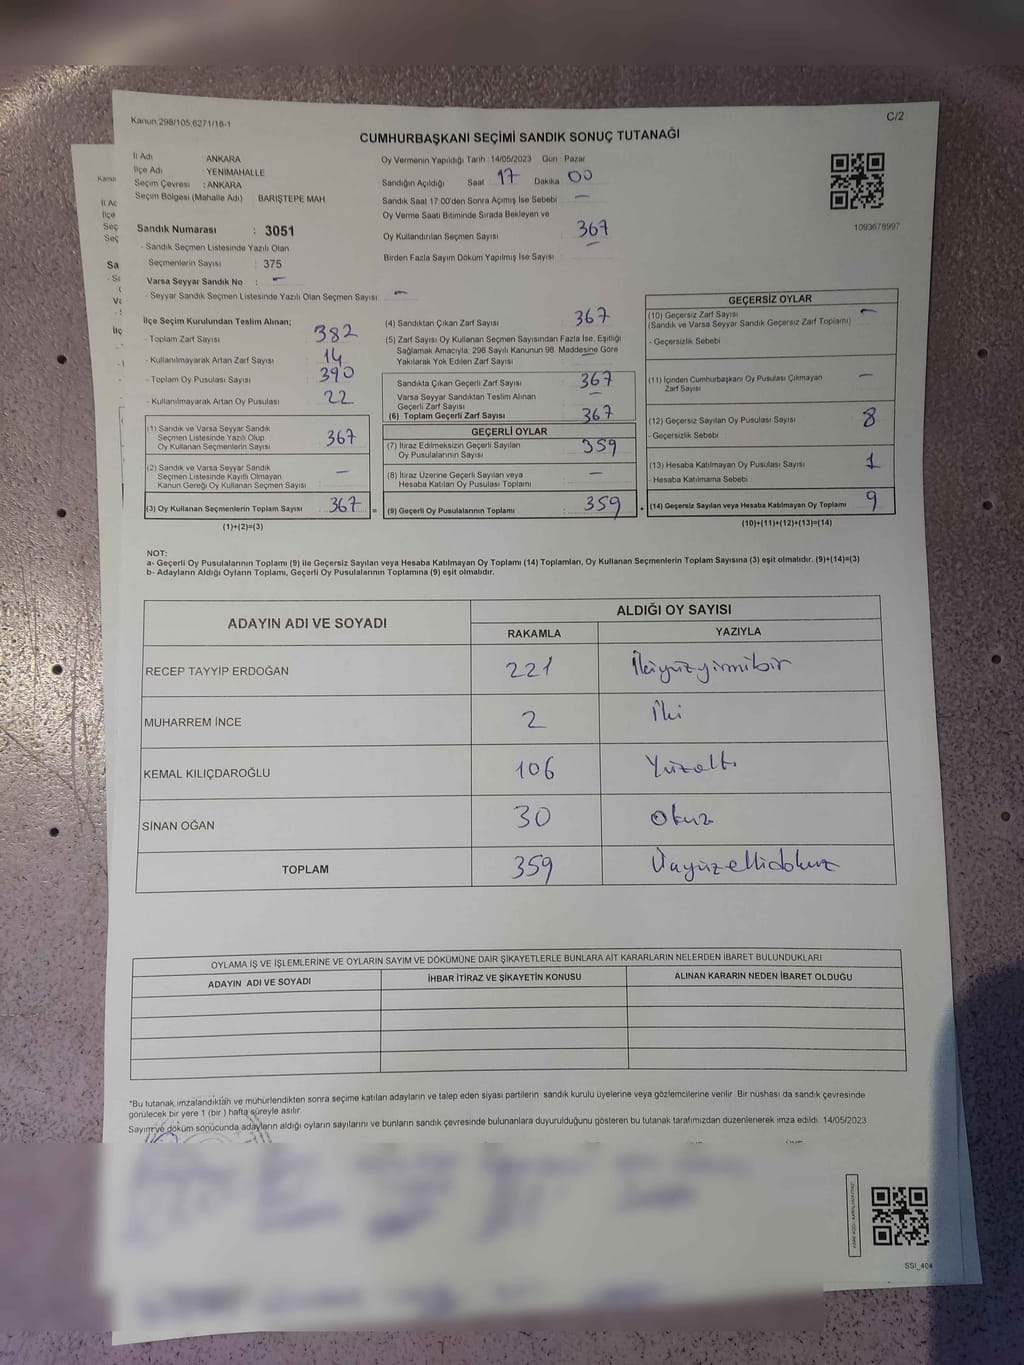 Kanun:298/105,6271/18-1
C/2
CUMHURBAŞKANI SEÇİMİ SANDIK SONUÇ TUTANAĞI
İl Adı ANKARA
İlçe Adı : YENİMAHALLE
Seçim Çevresi : ANKARA
Seçim Bölgesi (Mahalle Adı) BARIŞTEPE MAH
Sandık Numarası : 3051
- Sandık Seçmen Listesinde Yazılı Olan
Seçmenlerin Sayısı : 375
Varsa Seyyar Sandık No : -
- Seyyar Sandık Seçmen Listesinde Yazılı Olan Seçmen Sayısı: -
Oy Vermenin Yapıldığı Tarih : 14/05/2023 Gün : Pazar
Sandığın Açıldığı Saat 17 Dakika 00
Sandık Saat 17.00'den Sonra Açımış İse Sebebi -
Oy Verme Saati Bitiminde Sırada Bekleyen ve
Oy Kullandırılan Seçmen Sayısı 367
Birden Fazla Sayım Döküm Yapılmış İse Sayısı -
1093678997
İlçe Seçim Kurulundan Teslim Alınan;
- Toplam Zarf Sayısı 382
- Kullanılmayarak Artan Zarf Sayısı 14
- Toplam Oy Pusulası Sayısı 390
- Kullanılmayarak Artan Oy Pusulası 22
(1) Sandık ve Varsa Seyyar Sandık
Seçmen Listesinde Yazılı Olup
Oy Kullanan Seçmenlerin Sayısı 367
(2) Sandık ve Varsa Seyyar Sandık
Seçmen Listesinde Kayıtlı Olmayan
Kanun Gereği Oy Kullanan Seçmen Sayısı -
(3) Oy Kullanan Seçmenlerin Toplam Sayısı 367 =
(1)+(2)=(3)
(4) Sandıktan Çıkan Zarf Sayısı 367
(5) Zarf Sayısı Oy Kullanan Seçmen Sayısından Fazla İse, Eşitliği
Sağlamak Amacıyla; 298 Sayılı Kanunun 98. Maddesine Göre
Yakılarak Yok Edilen Zarf Sayısı -
Sandıkta Çıkan Geçerli Zarf Sayısı 367
Varsa Seyyar Sandıktan Teslim Alınan
Geçerli Zarf Sayısı -
(6) Toplam Geçerli Zarf Sayısı 367
GEÇERLİ OYLAR
(7) İtiraz Edilmeksizin Geçerli Sayılan
Oy Pusulalarının Sayısı 359
(8) İtiraz Üzerine Geçerli Sayılan veya
Hesaba Katılan Oy Pusulası Toplamı -
(9) Geçerli Oy Pusulalarının Toplamı 359 +
GEÇERSİZ OYLAR
(10) Geçersiz Zarf Sayısı -
(Sandık ve Varsa Seyyar Sandık Geçersiz Zarf Toplamı)
- Geçersizlik Sebebi
(11) İçinden Cumhurbaşkanı Oy Pusulası Çıkmayan
Zarf Sayısı -
(12) Geçersiz Sayılan Oy Pusulası Sayısı 8
- Geçersizlik Sebebi
(13) Hesaba Katılmayan Oy Pusulası Sayısı 1
- Hesaba Katılmama Sebebi
(14) Geçersiz Sayılan veya Hesaba Katılmayan Oy Toplamı 9
(10)+(11)+(12)+(13)=(14)
NOT:
a- Geçerli Oy Pusulalarının Toplamı (9) ile Geçersiz Sayılan veya Hesaba Katılmayan Oy Toplamı (14) Toplamları, Oy Kullanan Seçmenlerin Toplam Sayısına (3) eşit olmalıdır. (9)+(14)=(3)
b- Adayların Aldığı Oyların Toplamı, Geçerli Oy Pusulalarının Toplamına (9) eşit olmalıdır.
ADAYIN ADI VE SOYADI ALDIĞI OY SAYISI
RAKAMLA YAZIYLA
RECEP TAYYİP ERDOĞAN 221 İkiyüzyirmibir
MUHARREM İNCE 2 İki
KEMAL KILIÇDAROĞLU 106 Yüzaltı
SİNAN OĞAN 30 Otuz
TOPLAM 359 Üçyüzellidokuz
OYLAMA İŞ VE İŞLEMLERİNE VE OYLARIN SAYIM VE DÖKÜMÜNE DAİR ŞİKAYETLERLE BUNLARA AİT KARARLARIN NELERDEN İBARET BULUNDUKLARI
ADAYIN ADI VE SOYADI İHBAR İTİRAZ VE ŞİKAYETİN KONUSU ALINAN KARARIN NEDEN İBARET OLDUĞU
*Bu tutanak imzalandıktan ve mühürlendikten sonra seçime katılan adayların ve talep eden siyasi partilerin sandık kurulu üyelerine veya gözlemcilerine verilir. Bir nüshası da sandık çevresinde
görülecek bir yere 1 (bir) hafta süreyle asılır.
Sayım ve döküm sonucunda adayların aldığı oyların sayılarını ve bunların sandık çevresinde bulunanlara duyurulduğunu gösteren bu tutanak tarafımızdan düzenlenerek imza edildi. 14/05/2023
SSI_404